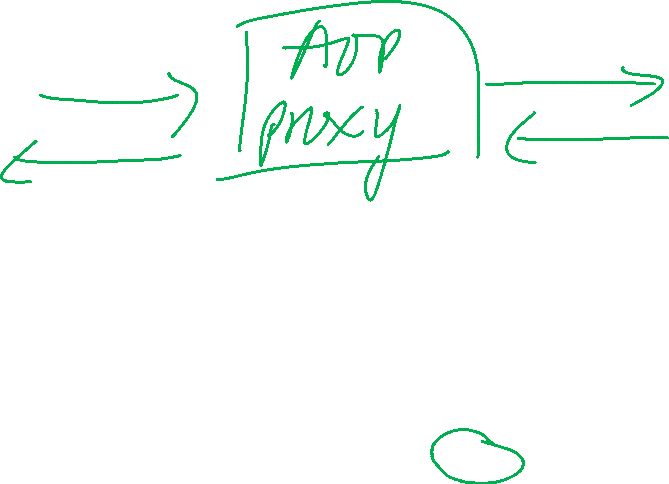 AOP
proxy